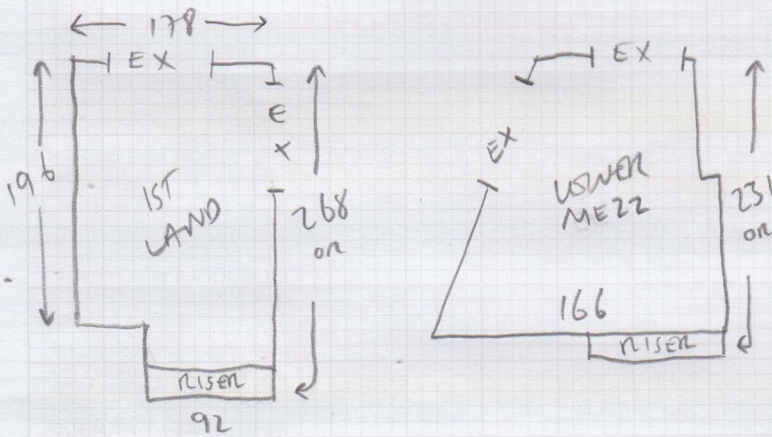 178
EX
EX
196
1ST
LAND
268
OR
RISER
92
EX
EX
LOWER
MEZZ
231
OR
166
RISER